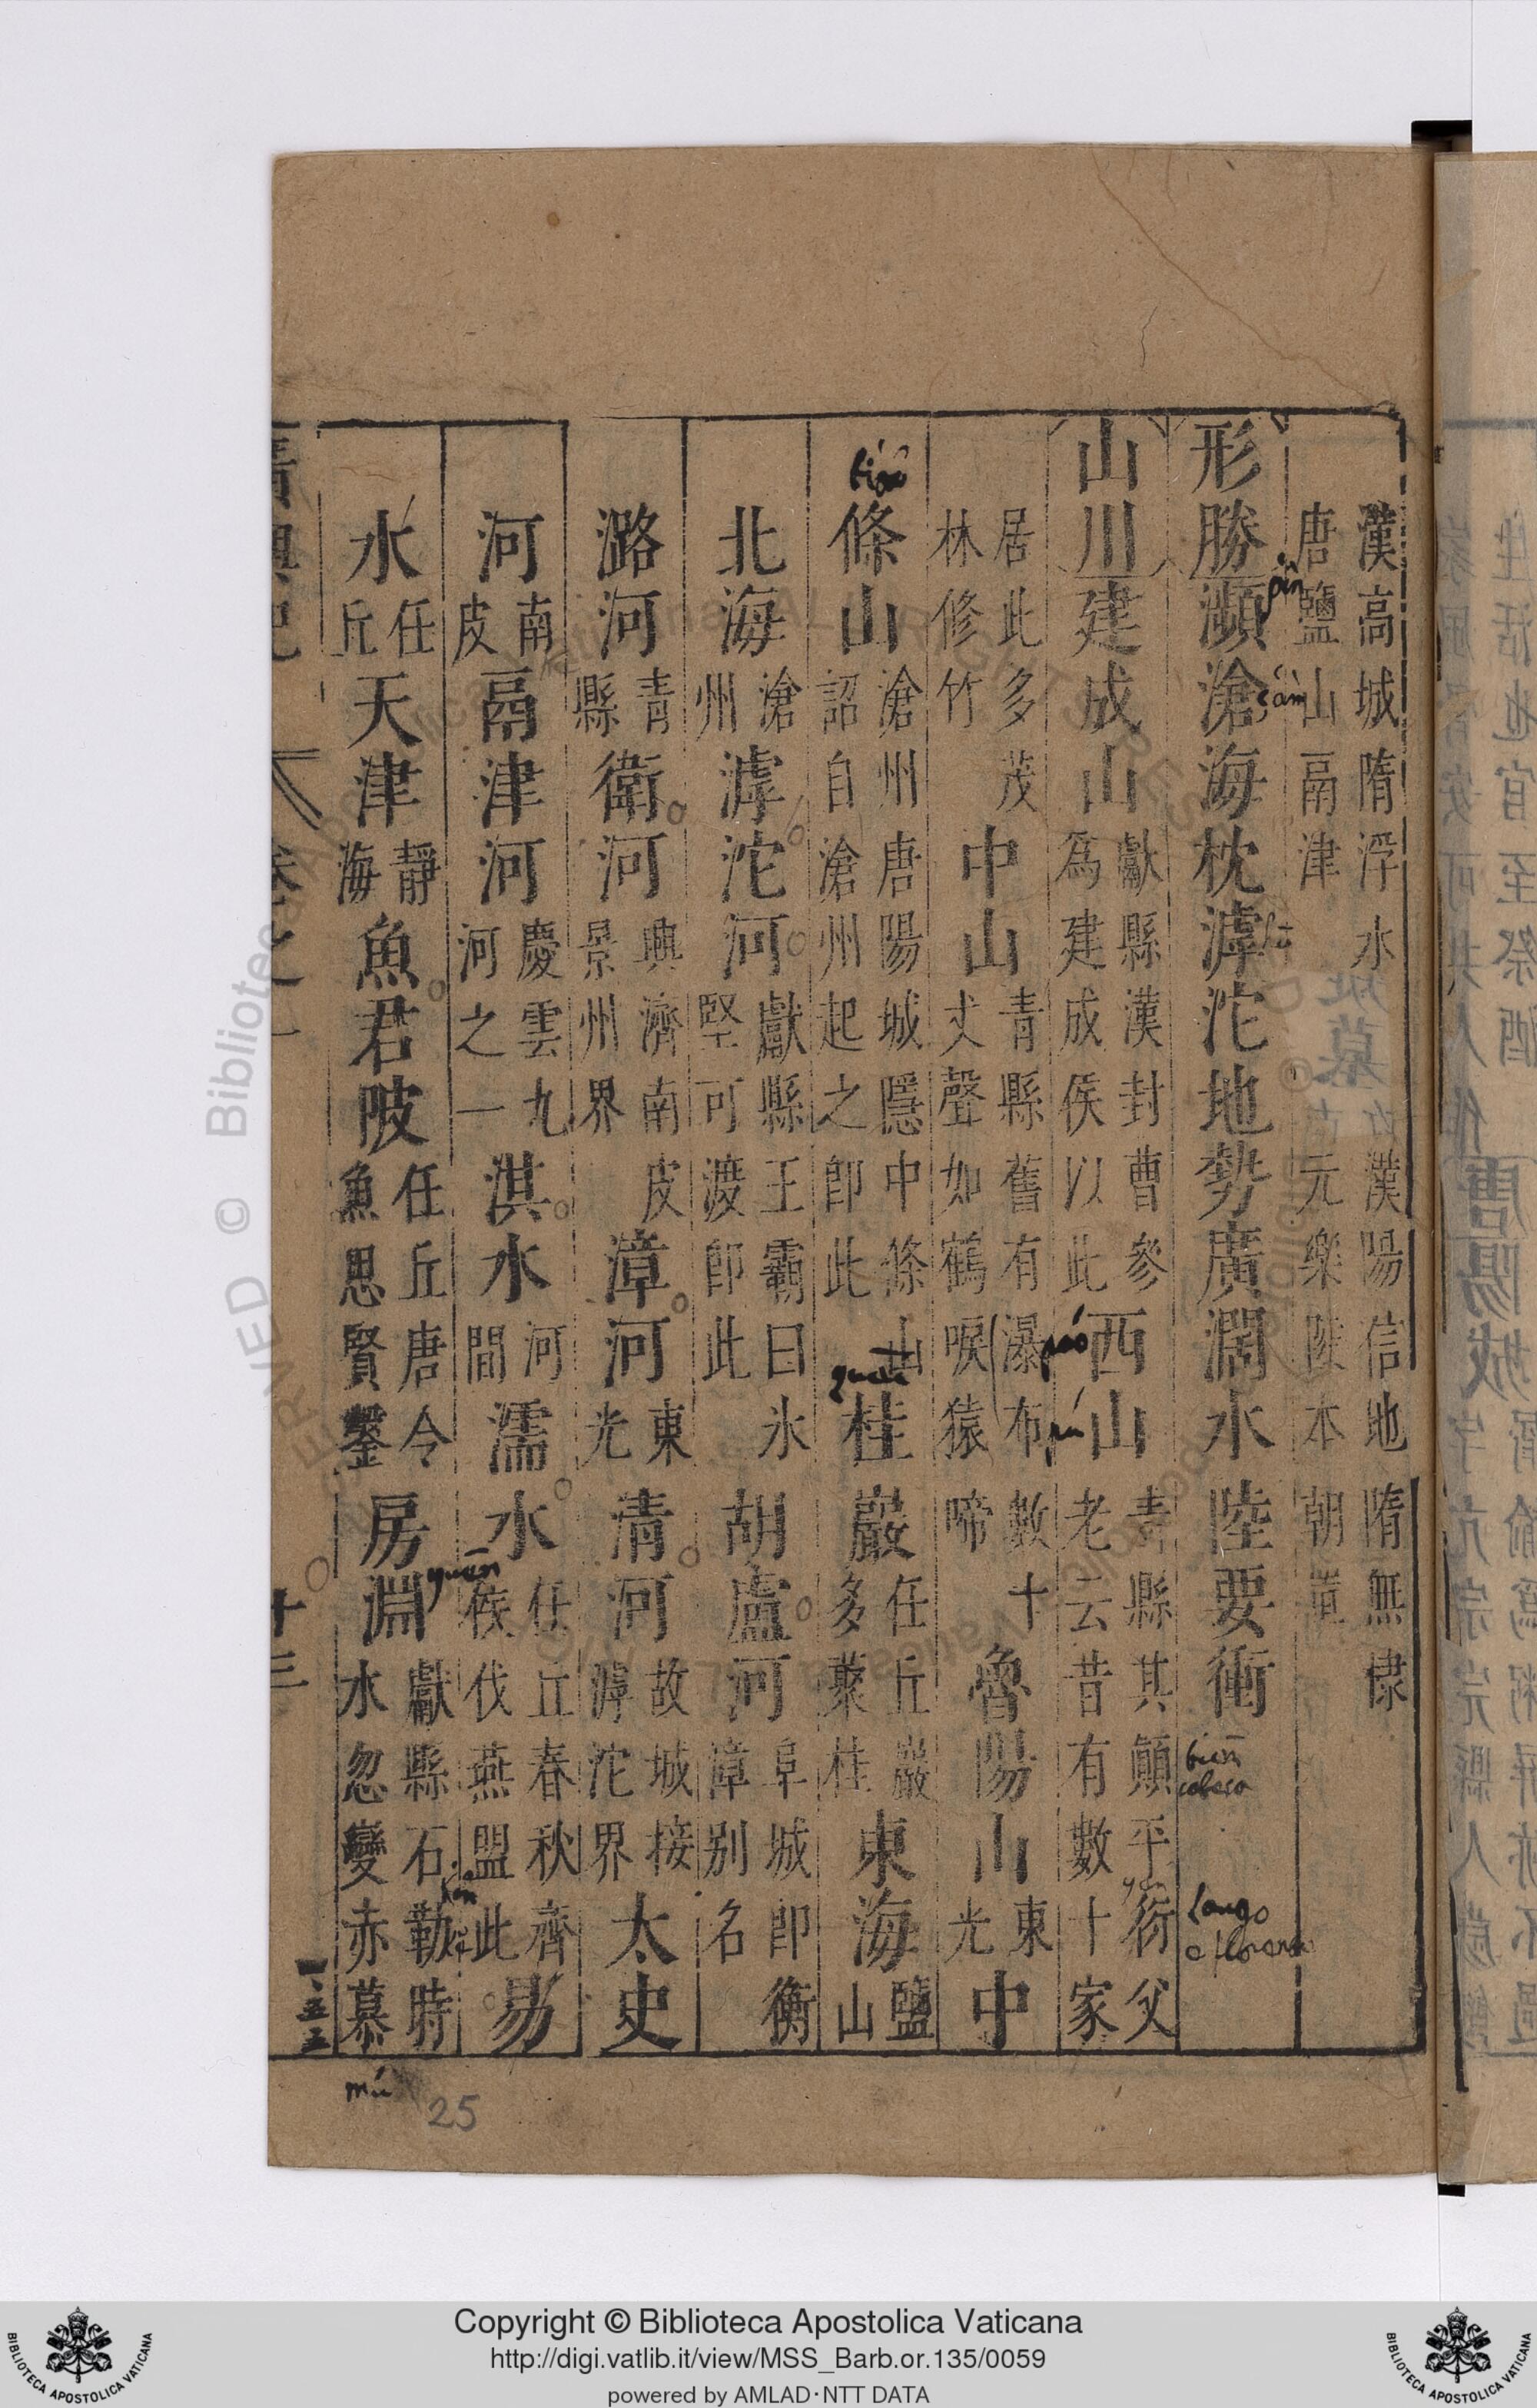 漢高城隋浮水 漢陽信地隋無棣
唐鹽山鬲津 元樂陵本朝
形勝瀕滄海枕滹沱地勢廣濶水陸要衝
山川建成山獻縣漢封曹參爲建成侯以此西山青縣其顛平衍父老云昔有數十家
居此多茂林修竹中山青縣舊有瀑布數十丈聲如鶴唳猿啼魯陽山東光中
條山滄州唐陽城隱中條山詔自滄州起之卽此桂巖任丘巖多叢桂東海鹽山
北海滄州滹沱河獻縣王霸曰氷堅可渡卽此胡盧河阜城卽衡漳別名
潞河青縣衛河興濟南皮景州界漳河東光清河故城接滹沱界太史
河南皮鬲津河慶雲九河之一淇水河間濡水任丘春秋齊侯伐燕盟此易
水任丘天津靜海魚君陂任丘唐令魚思賢鑿房淵獻縣石勒時水忽變赤慕
卷之一
十三
pin
yuēn
mú
25
Copyright © Biblioteca Apostolica Vaticana
http://digi.vatlib.it/view/MSS_Barb.or.135/0059
powered by AMLAD·NTT DATA
BIBLIOTECA APOSTOLICA VATICANA
BIBLIOTECA APOSTOLICA VATICANA